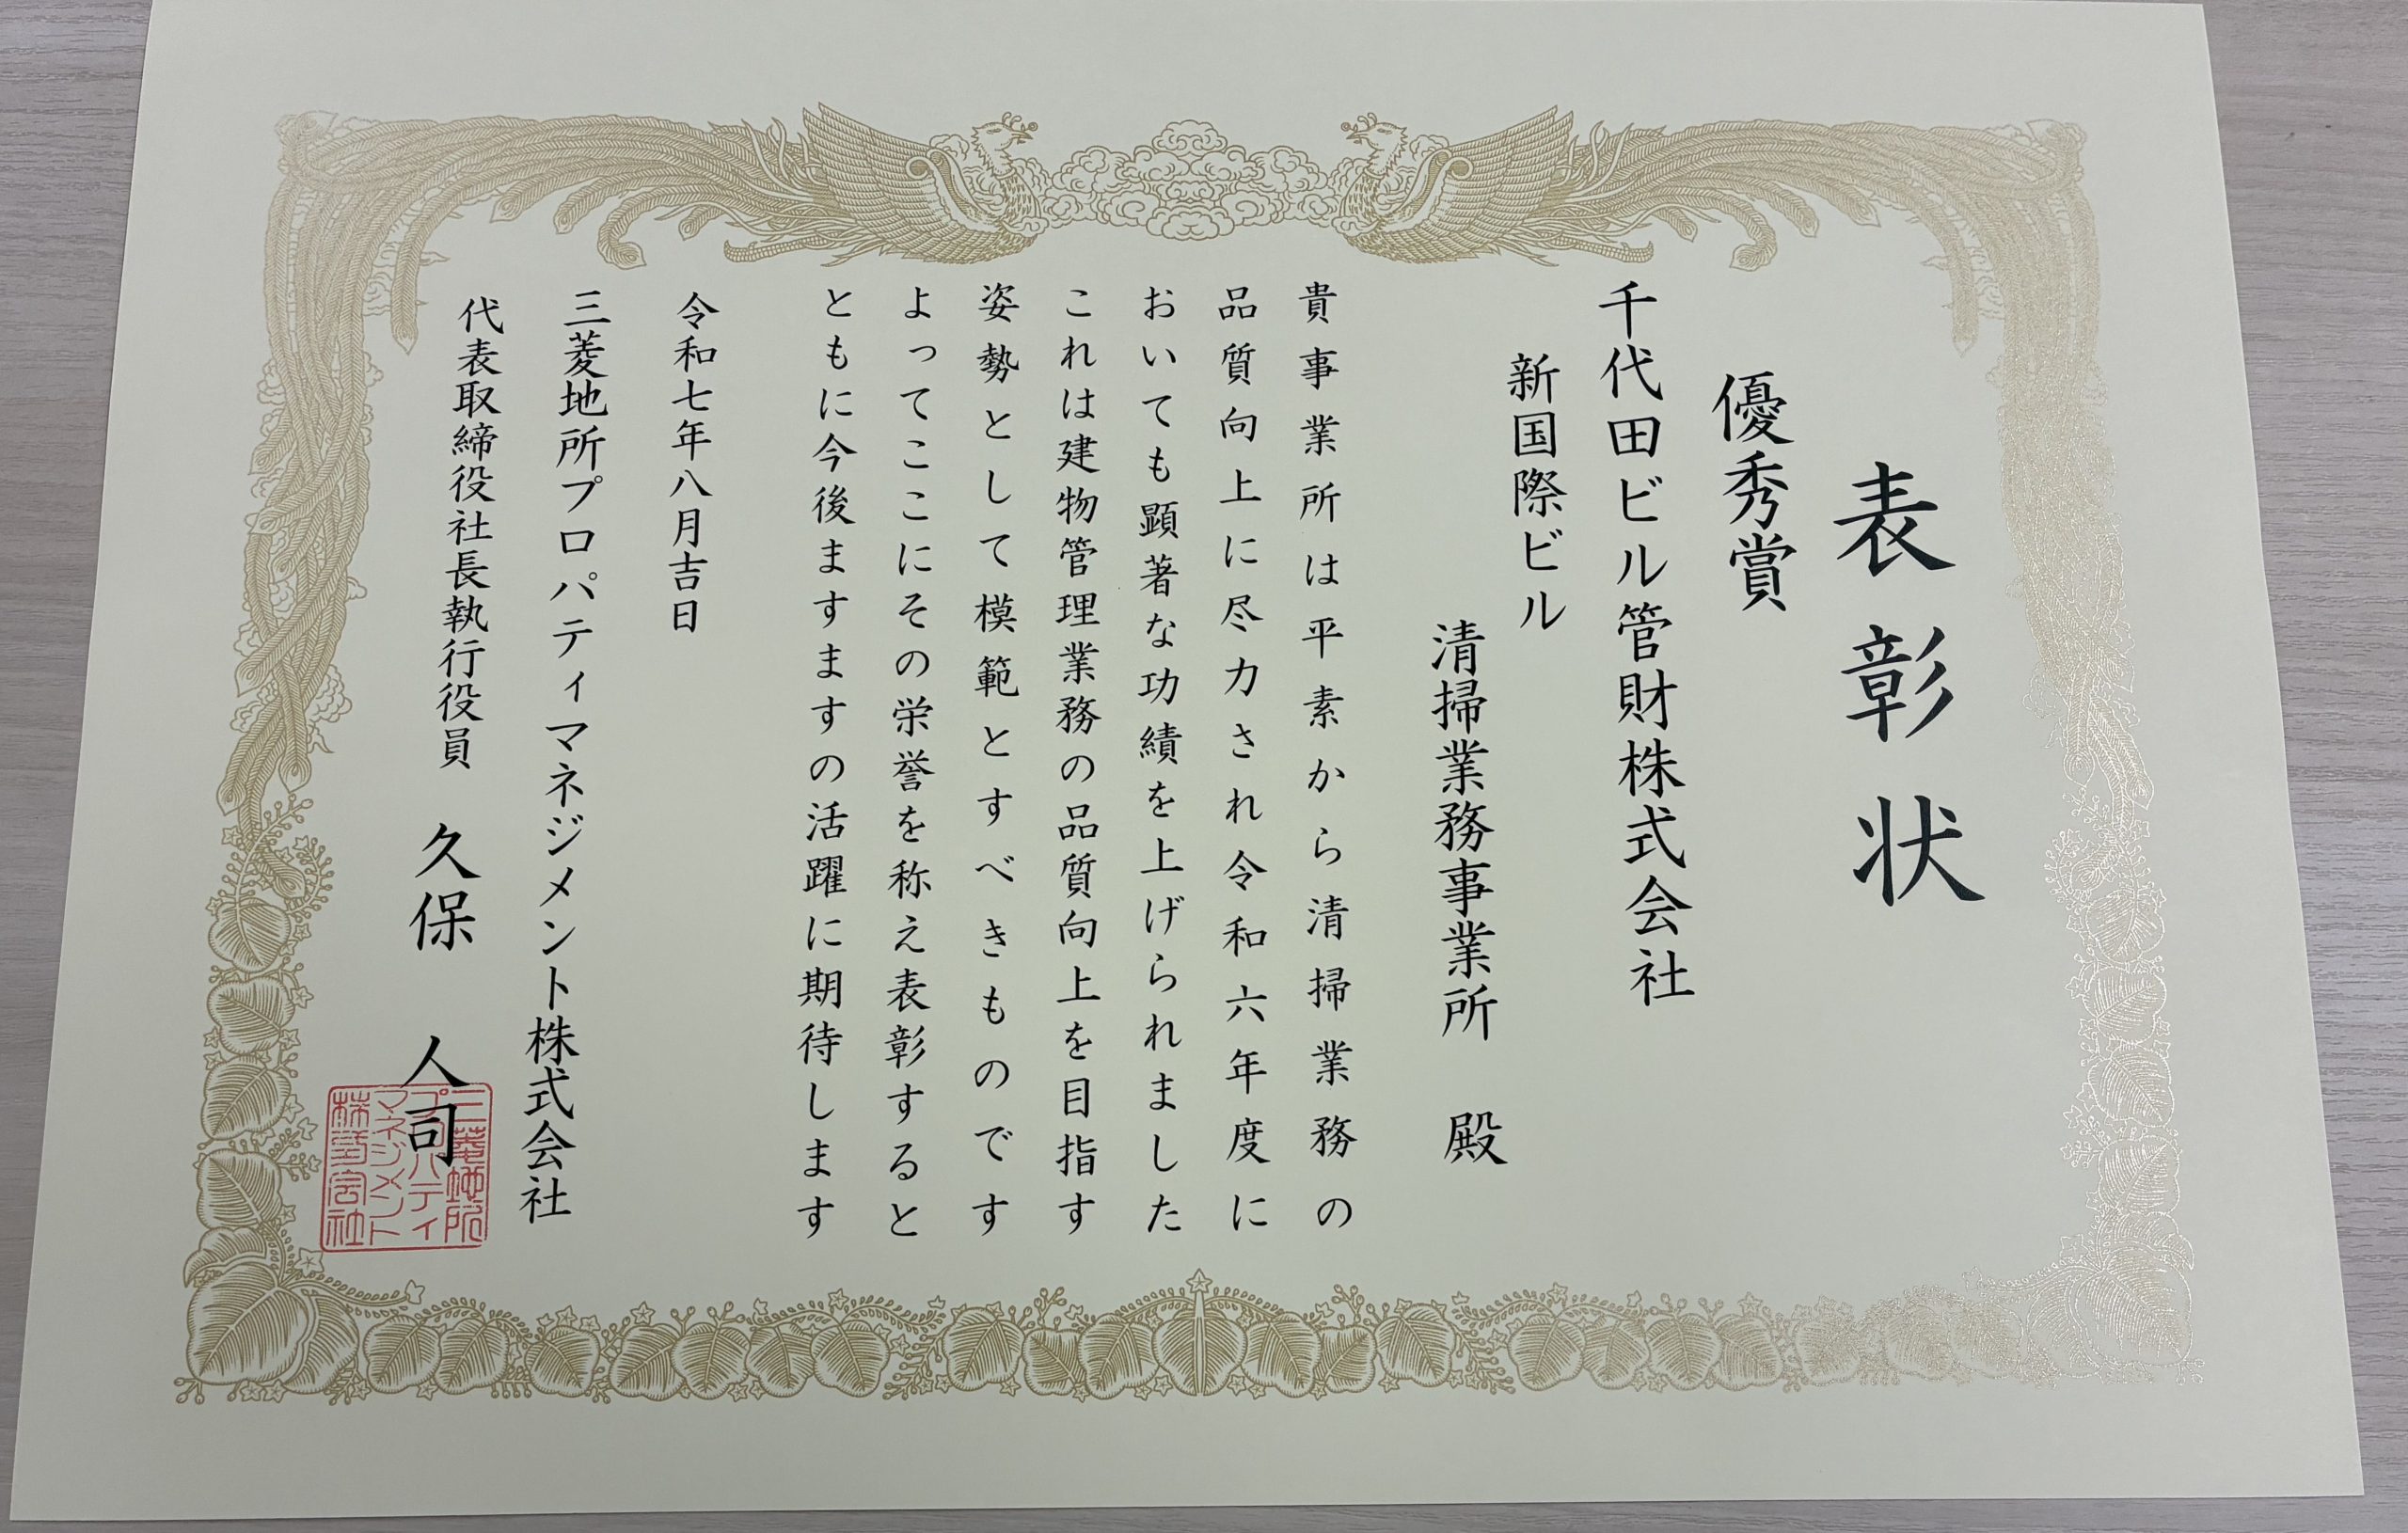 表彰状
優秀賞
千代田ビル管財株式会社
新国際ビル
清掃業務事業所 殿
貴事業所は平素から清掃業務の
品質向上に尽力され令和六年度に
おいても顕著な功績を上げられました
これは建物管理業務の品質向上を目指す
姿勢として模範とすべきものです
よってここにその栄誉を称え表彰すると
ともに今後ますますの活躍に期待します
令和七年八月吉日
三菱地所プロパティマネジメント株式会社
代表取締役社長執行役員 久保 人司
三菱地所
プロパティ
マネジメント
株式会社